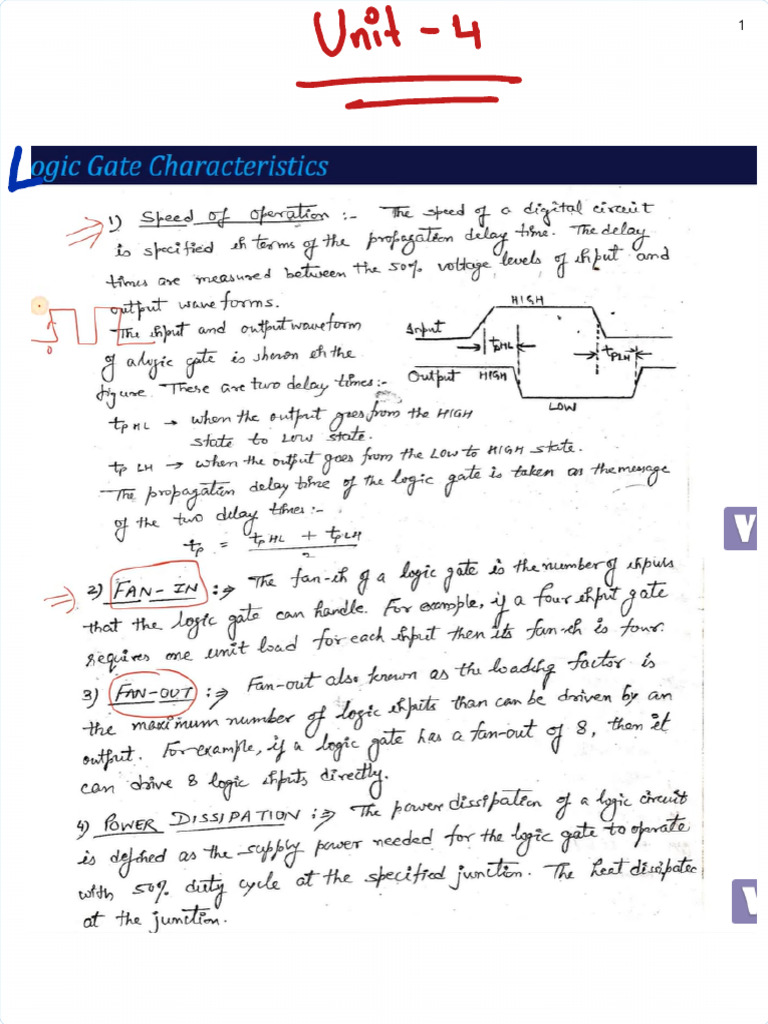 Unit - 4
1
Logic Gate Characteristics
1) Speed of Operation :- The speed of a digital circuit
is specified in terms of the propagation delay time. The delay
times are measured between the 50% voltage levels of input and
output wave forms.
The input and output waveform
of a logic gate is shown in the
figure. These are two delay times:-
HIGH
Input
tPHL
tPLH
Output HIGH
LOW
tPHL → when the output goes from the HIGH
state to LOW state.
tPLH → when the output goes from the LOW to HIGH state.
The propagation delay time of the logic gate is taken as the message
of the two delay times :-
tp = tPHL + tPLH
2
2) FAN-IN :⇒ The fan-in of a logic gate is the number of inputs
that the logic gate can handle. For example, if a four input gate
requires one unit load for each input then its fan-in is four.
3) FAN-OUT :⇒ Fan-out also known as the loading factor is
the maximum number of logic inputs than can be driven by an
output. For example, if a logic gate has a fan-out of 8, then it
can drive 8 logic inputs directly.
4) POWER DISSIPATION :⇒ The power dissipation of a logic circuit
is defined as the supply power needed for the logic gate to operate
with 50% duty cycle at the specified junction. The heat dissipated
at the junction.
0
V
V